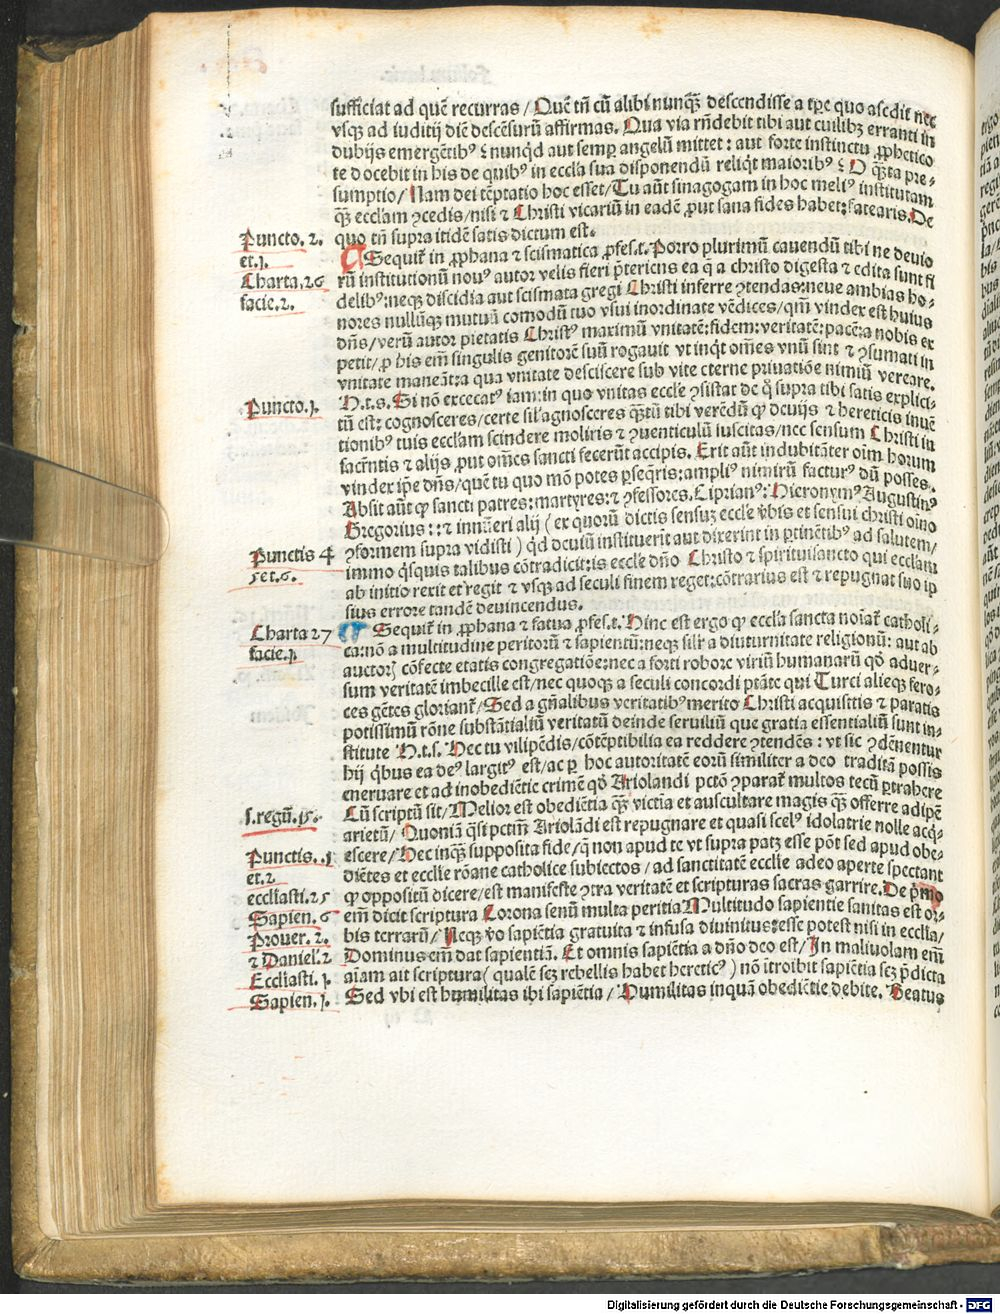 sufficiat ad quē recurras / Quē tñ cū alibi nunqȝ descendisse a tpe quo ascēdit nec
vsqȝ ad iuditij diē descēsurū affirmas. Qua via rñdebit tibi aut cuilibȝ erranti in
dubijs emergētibꝰ ⁊ nunqd aut semp angelū mittet : aut forte instinctu ꝓphetico
te docebit in his de quibꝰ in eccľa sua disponendū reliqt maioribꝰ ⁊ O qȝta pre-
sumptio / Nam dei tēptatio hoc esset / Tu aūt sinagogam in hoc meliꝰ institutam
qȝ eccľam ꝯcedis / nisi ⁊ Christi vicariū in eadē ꝓut sana fides habet: fatearis. De
quo tñ supra itidē satis dictum est.
Puncto. 2.
et. 1.
Charta. 26
facie. 2.
Sequit᷑ in ꝓphana ⁊ scismatica ꝓfes. t. Porro plurimū cauendū tibi ne deuio
rū institutionū nouꝰ autor velis fieri p̄teriens ea q̄ a christo digesta ⁊ edita sunt fi
delibꝰ: neqȝ discidia aut scismata gregi Christi inferre ꝯtendas: neue ambias ho-
nores nullūqȝ mutuū comodū tuo vsui inordinate vēdices / qm̄ vindex est huius
dñs / verū autor pietatis Christꝰ maximū vnitatē: fidem: veritatē: pacē: a nobis ex
petit / ꝑ his em̄ singulis genitorē suū rogauit vt inqt om̄es vnū sint ⁊ ꝯsumati in
vnitate maneāt: a qua vnitate desciscere sub vite eterne priuatiōe nimiū vereare.
Puncto. 1.
H. t. s. Si nō excecatꝰ iam: in quo vnitas eccľe ꝯsistat de q̄ supra tibi satis explici-
tū est: cognosceres / certe siľ agnosceres qȝtū tibi verēdū ꝙ deuijs ⁊ hereticis inuē
tionibꝰ tuis eccľam scindere moliris ⁊ ꝯuenticulū iuscitas / nec sensum Christi in
sacrāntis ⁊ alijs ꝓut om̄es sancti fecerūt accipis. Erit aūt indubitāter oim horum
vindex ip̄e dñs / quē tu quo mō potes ꝑseqris: ampliꝰ nimirū facturꝰ dū posses.
Absit aūt ꝙ sancti patres: martyres: ⁊ ꝯfessores. Ciprianꝰ: Hieronymꝰ Augustinꝰ
Gregorius : : ⁊ innūeri alij ( ex quorū dictis sensuȝ eccľe v̄bis et sensui christi oino
Punctis 4
5 et. 6.
ꝯformem supra vidisti ) qd deuiū instituerit aut dixerint in ꝑtinētibꝰ ad salutem /
immo q̄squis talibus cōtradicit: is eccľe dño Christo ⁊ spirituisancto qui eccľam
ab initio rexit et regit ⁊ vsqȝ ad seculi finem reget: cōtrarius est ⁊ repugnat suo ip
sius errore tandē deuincendus.
Charta 27
facie. 1.
Sequit᷑ in ꝓphana ⁊ fatua ꝓfes. t. Hinc est ergo ꝙ eccľa sancta noiat᷑ catholi-
ca: nō a multitudine peritorū ⁊ sapientū: neqȝ siľr a diuturnitate religionū: aut ab
auctorꝝ cōfecte etatis congregatiōe: nec a forti robore viriū humanarū qō aduer-
sum veritatē imbecille est / nec quoqȝ a seculi concordi ptāte qui Turci alieqȝ fero-
ces gētes gloriant᷑ / Sed a gñalibus veritatibꝰ merito Christi acquisitis ⁊ paratis
potissimū rōne substātialiū veritatū deinde seruiliū que gratia essentialiū sunt in-
stitute H. t. s. Hec tu vilipēdis / cōtēptibilia ea reddere ꝯtendēs : vt sic ꝯdēnentur
hij q̄bus ea deꝰ largitꝰ est / ac ꝑ hoc autoritatē eorū similiter a deo traditā possis
eneruare et ad inobediētie crimē qō Ariolandi pctō ꝯparat᷑ multos tecū ptrahere
1. regū. 15.
Cū scriptū sit / Melior est obediētia qȝ victīa et auscultare magis qȝ offerre adipē
arietū / Quoniā qsi pctm̄ Ariolādi est repugnare et quasi scelꝰ idolatrie nolle acq-
Punctis. 1
et. 2
escere / Hec inqȝ supposita fide / q̄ non apud te vt supra patȝ esse pōt sed apud obe-
diētes et eccľie rōane catholice subiectos / ad sanctitatē eccľie adeo aperte spectant
eccľiasti. 25
ꝙ oppositū dicere / est manifeste ꝯtra veritatē et scripturas sacras garrire. De p̄mo
Sapien. 6
em̄ dicit scriptura Corona senū multa peritia Multitudo sapientie sanitas est or-
Prouer. 2.
bis terrarū / Neqȝ v̄o sapiētia gratuita ⁊ infusa diuinitus: esse potest nisi in eccľia /
⁊ Daniel. 2
Dominus em̄ dat sapientiā. Et omnis sapiētia a dño deo est / In maliuolam em̄
Eccľiasti. 1.
aīam ait scriptura ( qualē seȝ rebellis habet hereticꝰ ) nō ītroibit sapiētia seȝ p̄dicta
Sapien. 1.
Sed vbi est humilitas ibi sapiētia / Humilitas inquā obediētie debite. Beatus
Digitalisierung gefördert durch die Deutsche Forschungsgemeinschaft - DFG